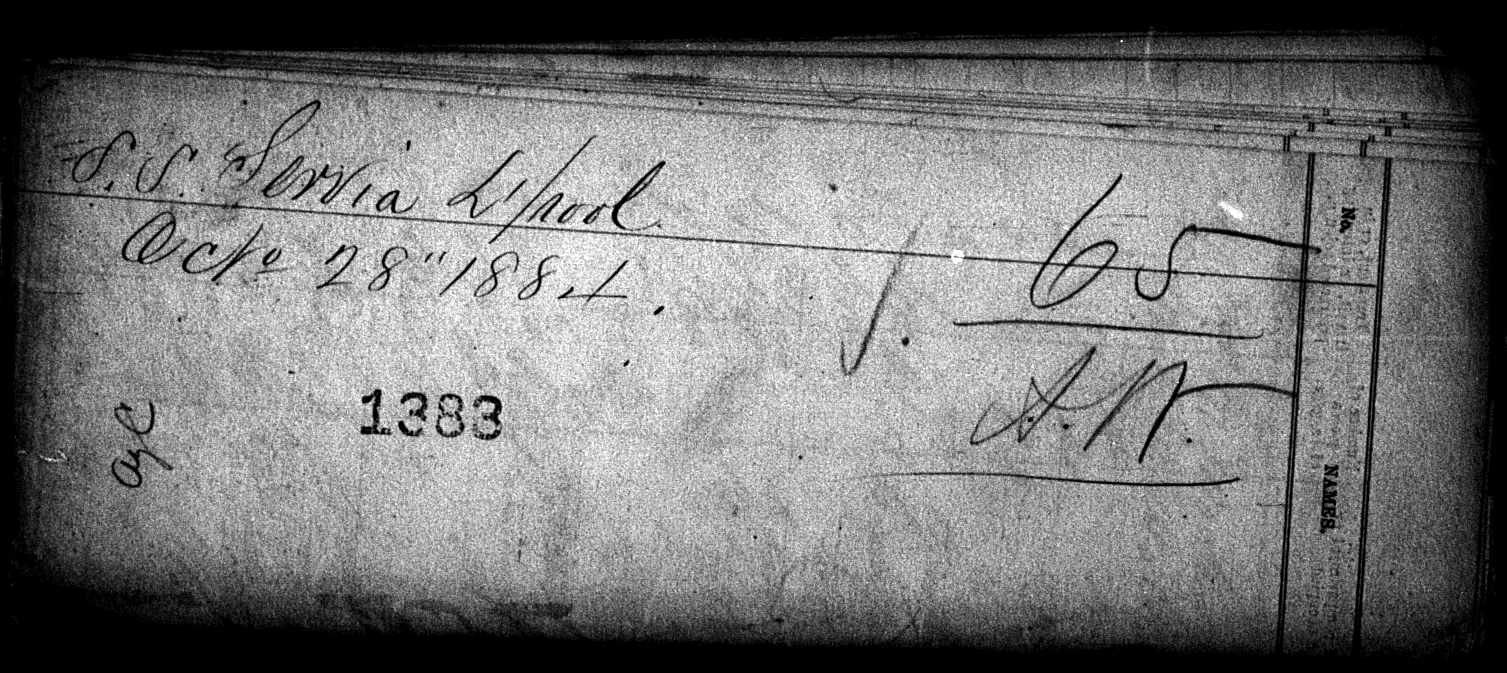 S.S. Servia L'pool
Octo 28" 1884.
65
1383
No.
NAMES.